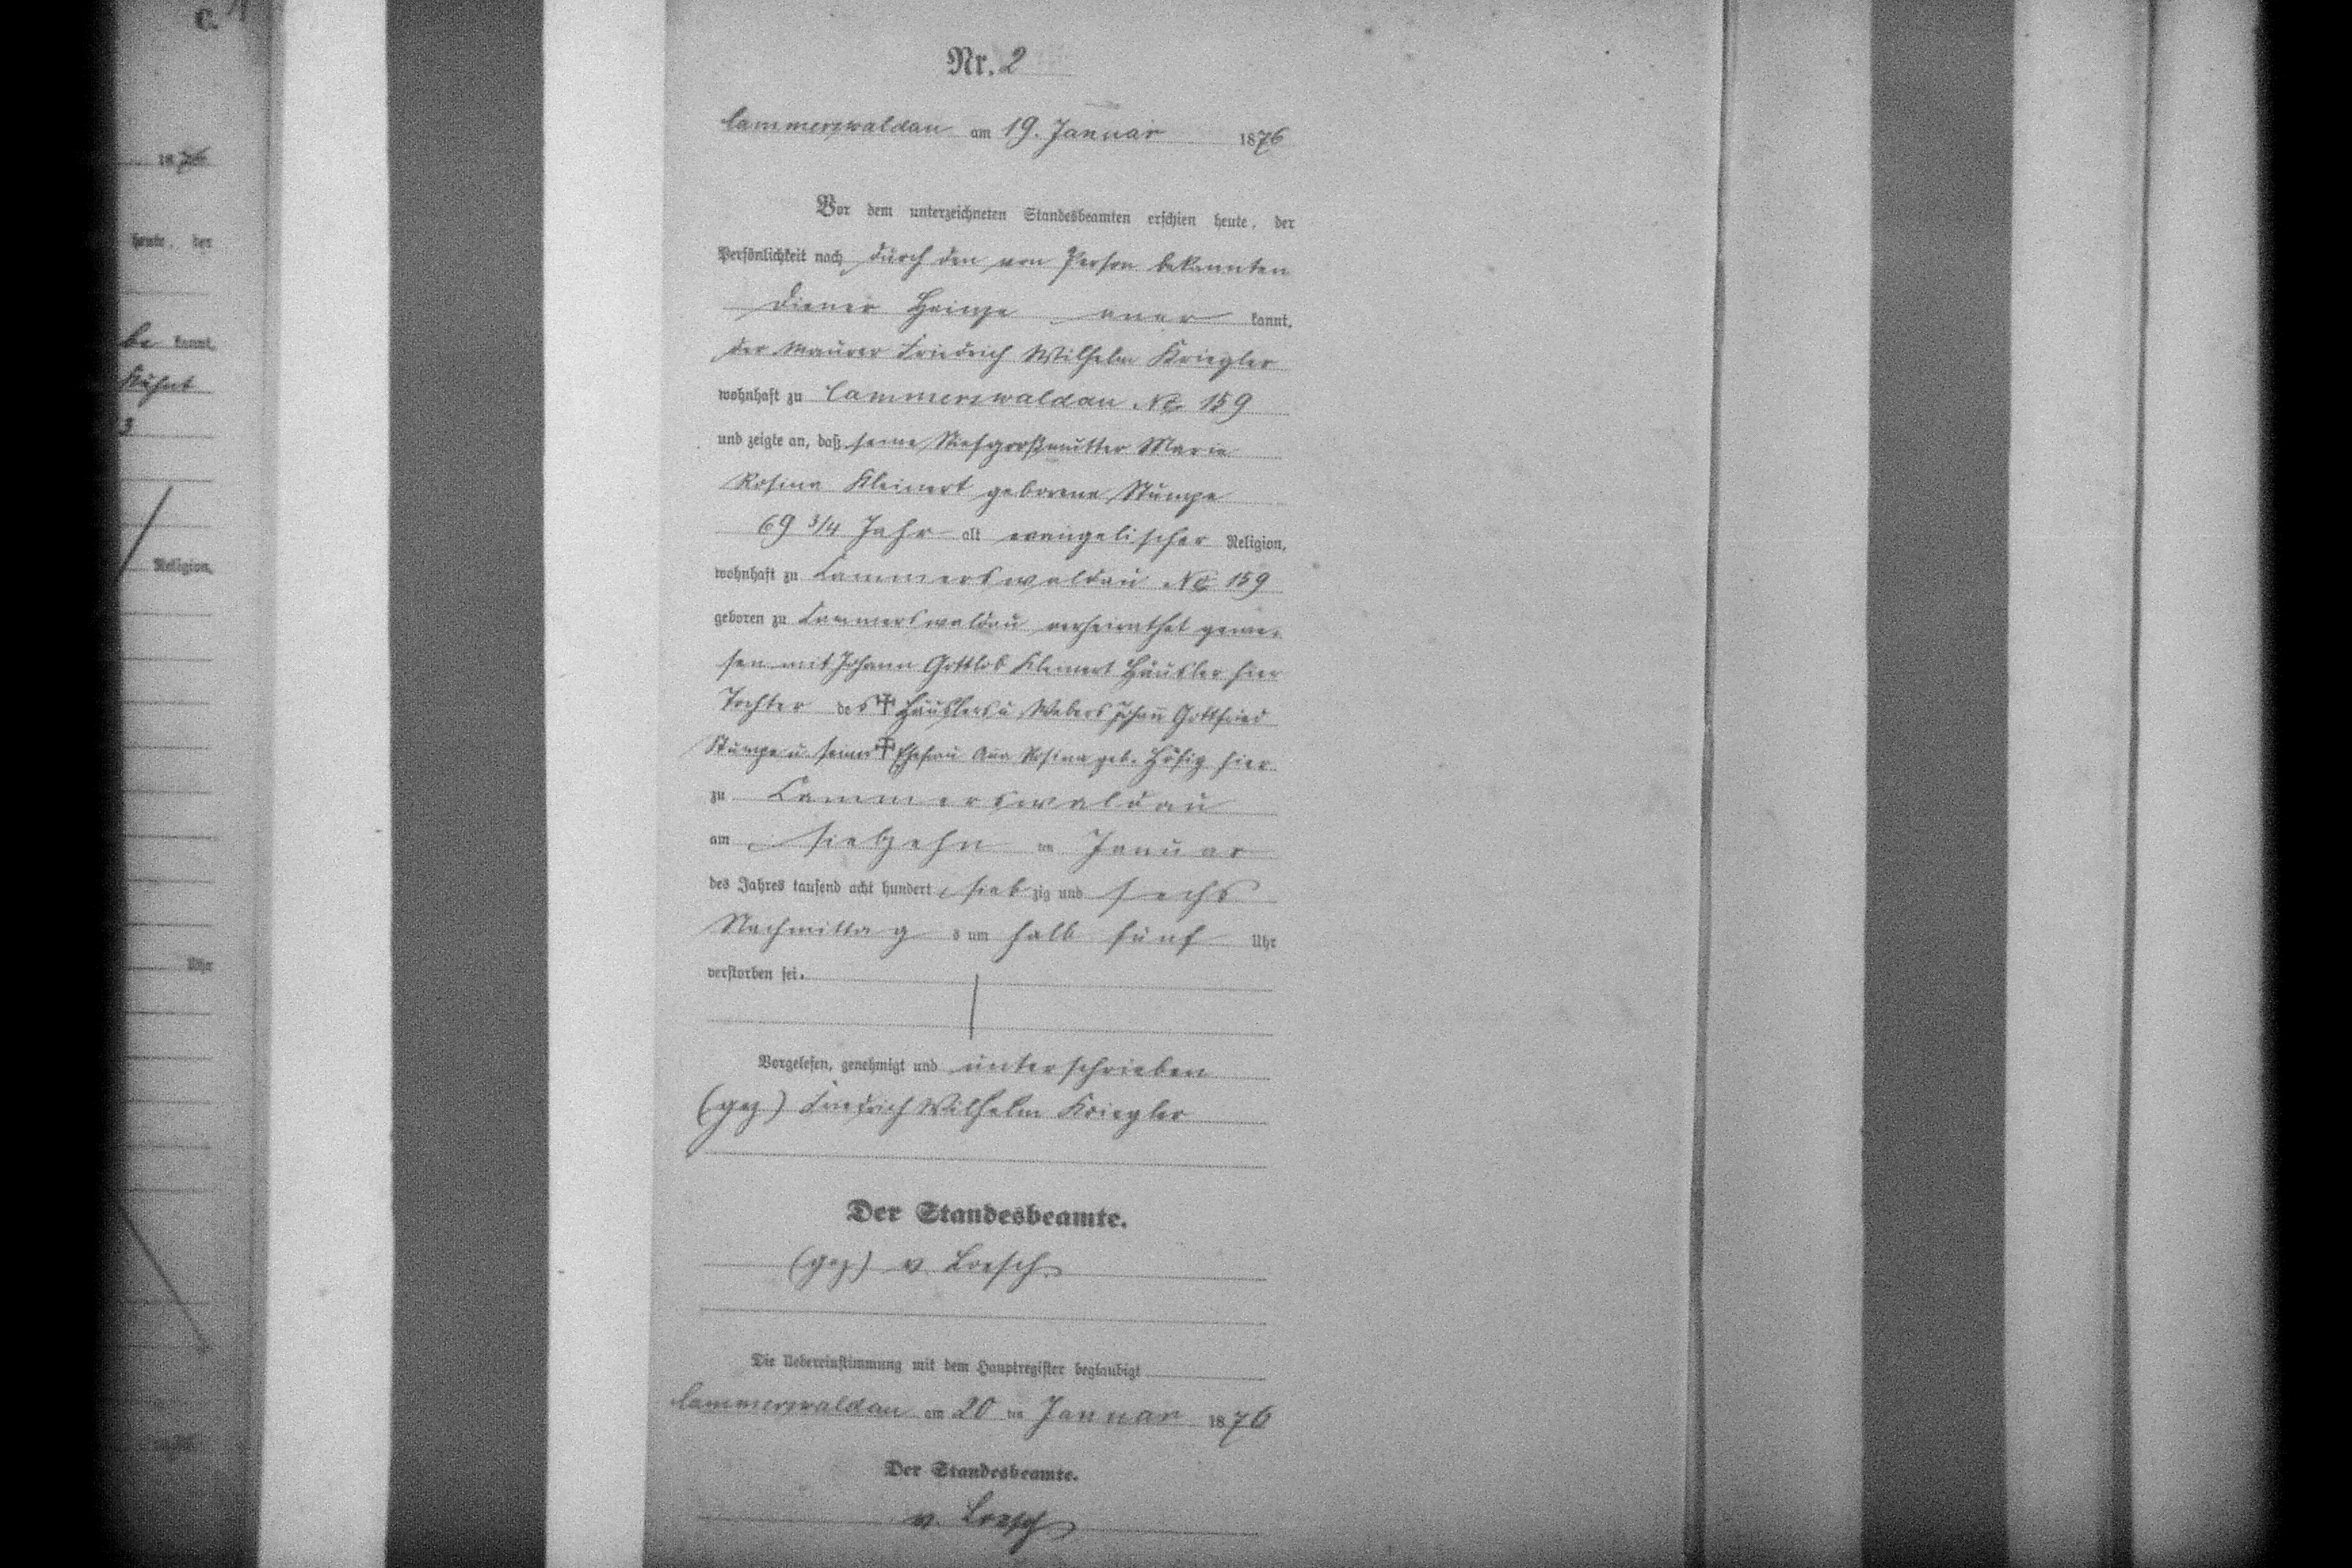 C. 1
1876
heute, der
be kannt,
Kühnt
3
Religion,
Uhr
Nr. 2
Cammerswaldau am 19. Januar 1876
Vor dem unterzeichneten Standesbeamten erschien heute, der
Persönlichkeit nach durch den von Person bekannten
Diener Heinze aner kannt,
der Maurer Friedrich Wilhelm Kriegler
wohnhaft zu Cammerswaldau No 159
und zeigte an, daß seine Stiefgroßmutter Marie
Rosina Kleinert geborene Stumpe
69 3/4 Jahr alt evangelischer Religion,
wohnhaft zu Cammerswaldau No 159
geboren zu Cammerswaldau verheirathet gewe-
sen mit Johann Gottlob Kleinert Häusler hier
Tochter des ✝ Häuslers u Webers Johan̄ Gottfried
Stumpe u. seiner ✝ Ehefrau An̄a Rosina geb. hier
zu Cammerswaldau
am siebzehn ten Januar
des Jahres tausend acht hundert sieb zig und sechs
Nachmittag s um halb fünf Uhr
verstorben sei.
Vorgelesen, genehmigt und unterschrieben
(gez) Friedrich Wilhelm Kriegler
Der Standesbeamte.
(gez) v. Loesch
Die Uebereinstimmung mit dem Hauptregister beglaubigt
Cammerswaldau am 20 ten Januar 1876
Der Standesbeamte.
v. Loesch